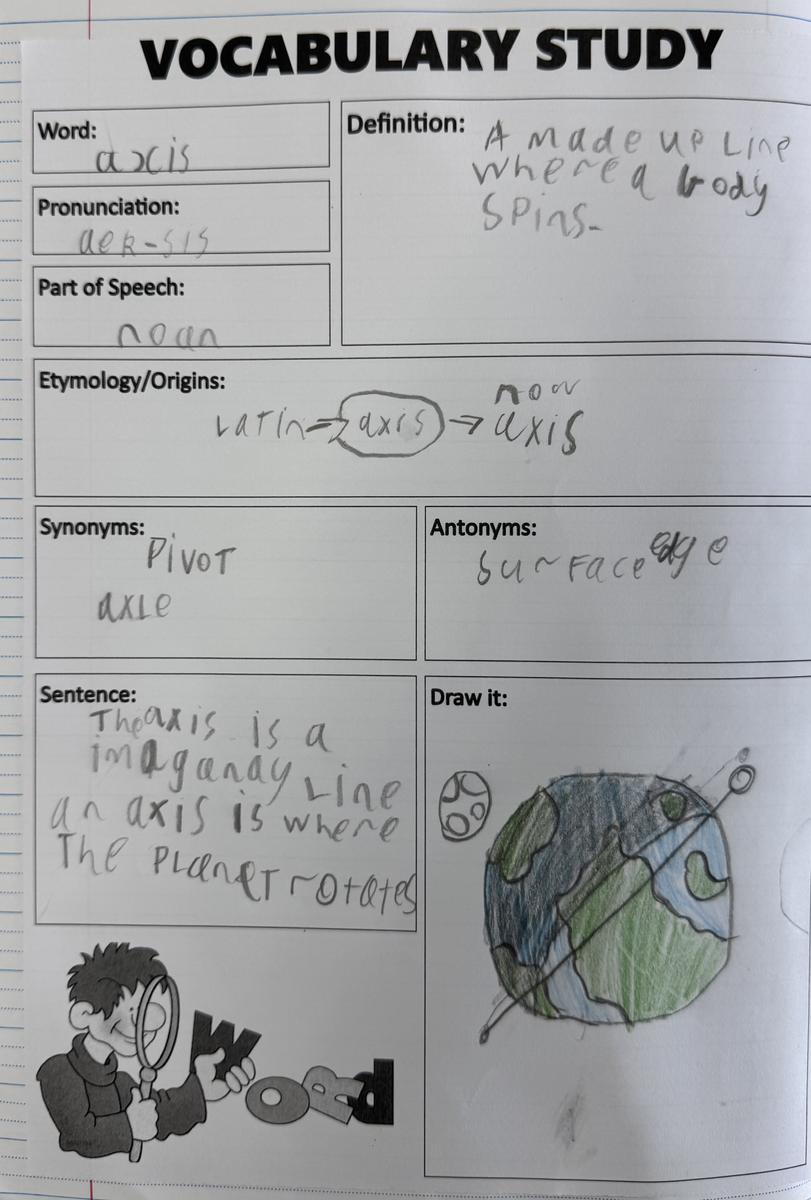 VOCABULARY STUDY
Word:
axis
Pronunciation:
aek-sis
Part of Speech:
noun
Definition:
A made up Line
where a body
spins.
Etymology/Origins:
Latin → axis → now
axis
Synonyms:
Pivot
axle
Antonyms:
surface edge
Sentence:
The axis is a
imaganday Line
an axis is where
The Planet rotates
Draw it:
WORd